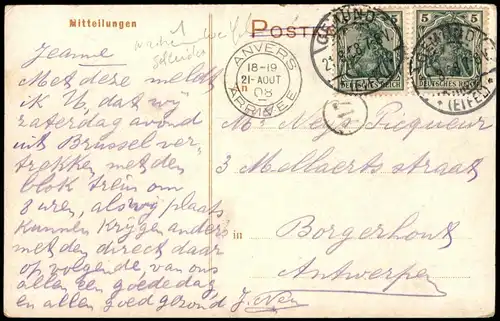 Mitteilungen
Postk
Jeanne
Met deze meldt
ik U, dat wij
zaterdag avond
uit Brussel ver-
trekken met den
blok trein om
8 uren, als wij plaats
kunnen krijgen anders
met den direct daar
op volgende, van ons
allen een goede dag
en allen goed gezond J. Ney
ANVERS
18-19
21-AOUT
08
ARRIVEE
GEMÜND
(EIFEL)
5 5
DEUTSCHES REICH
DEUTSCHES REICH
GEMÜND
(EIFEL)
Mr Ney Picqueur
3 Mollaerts straat
in Borgerhout
Antwerpen